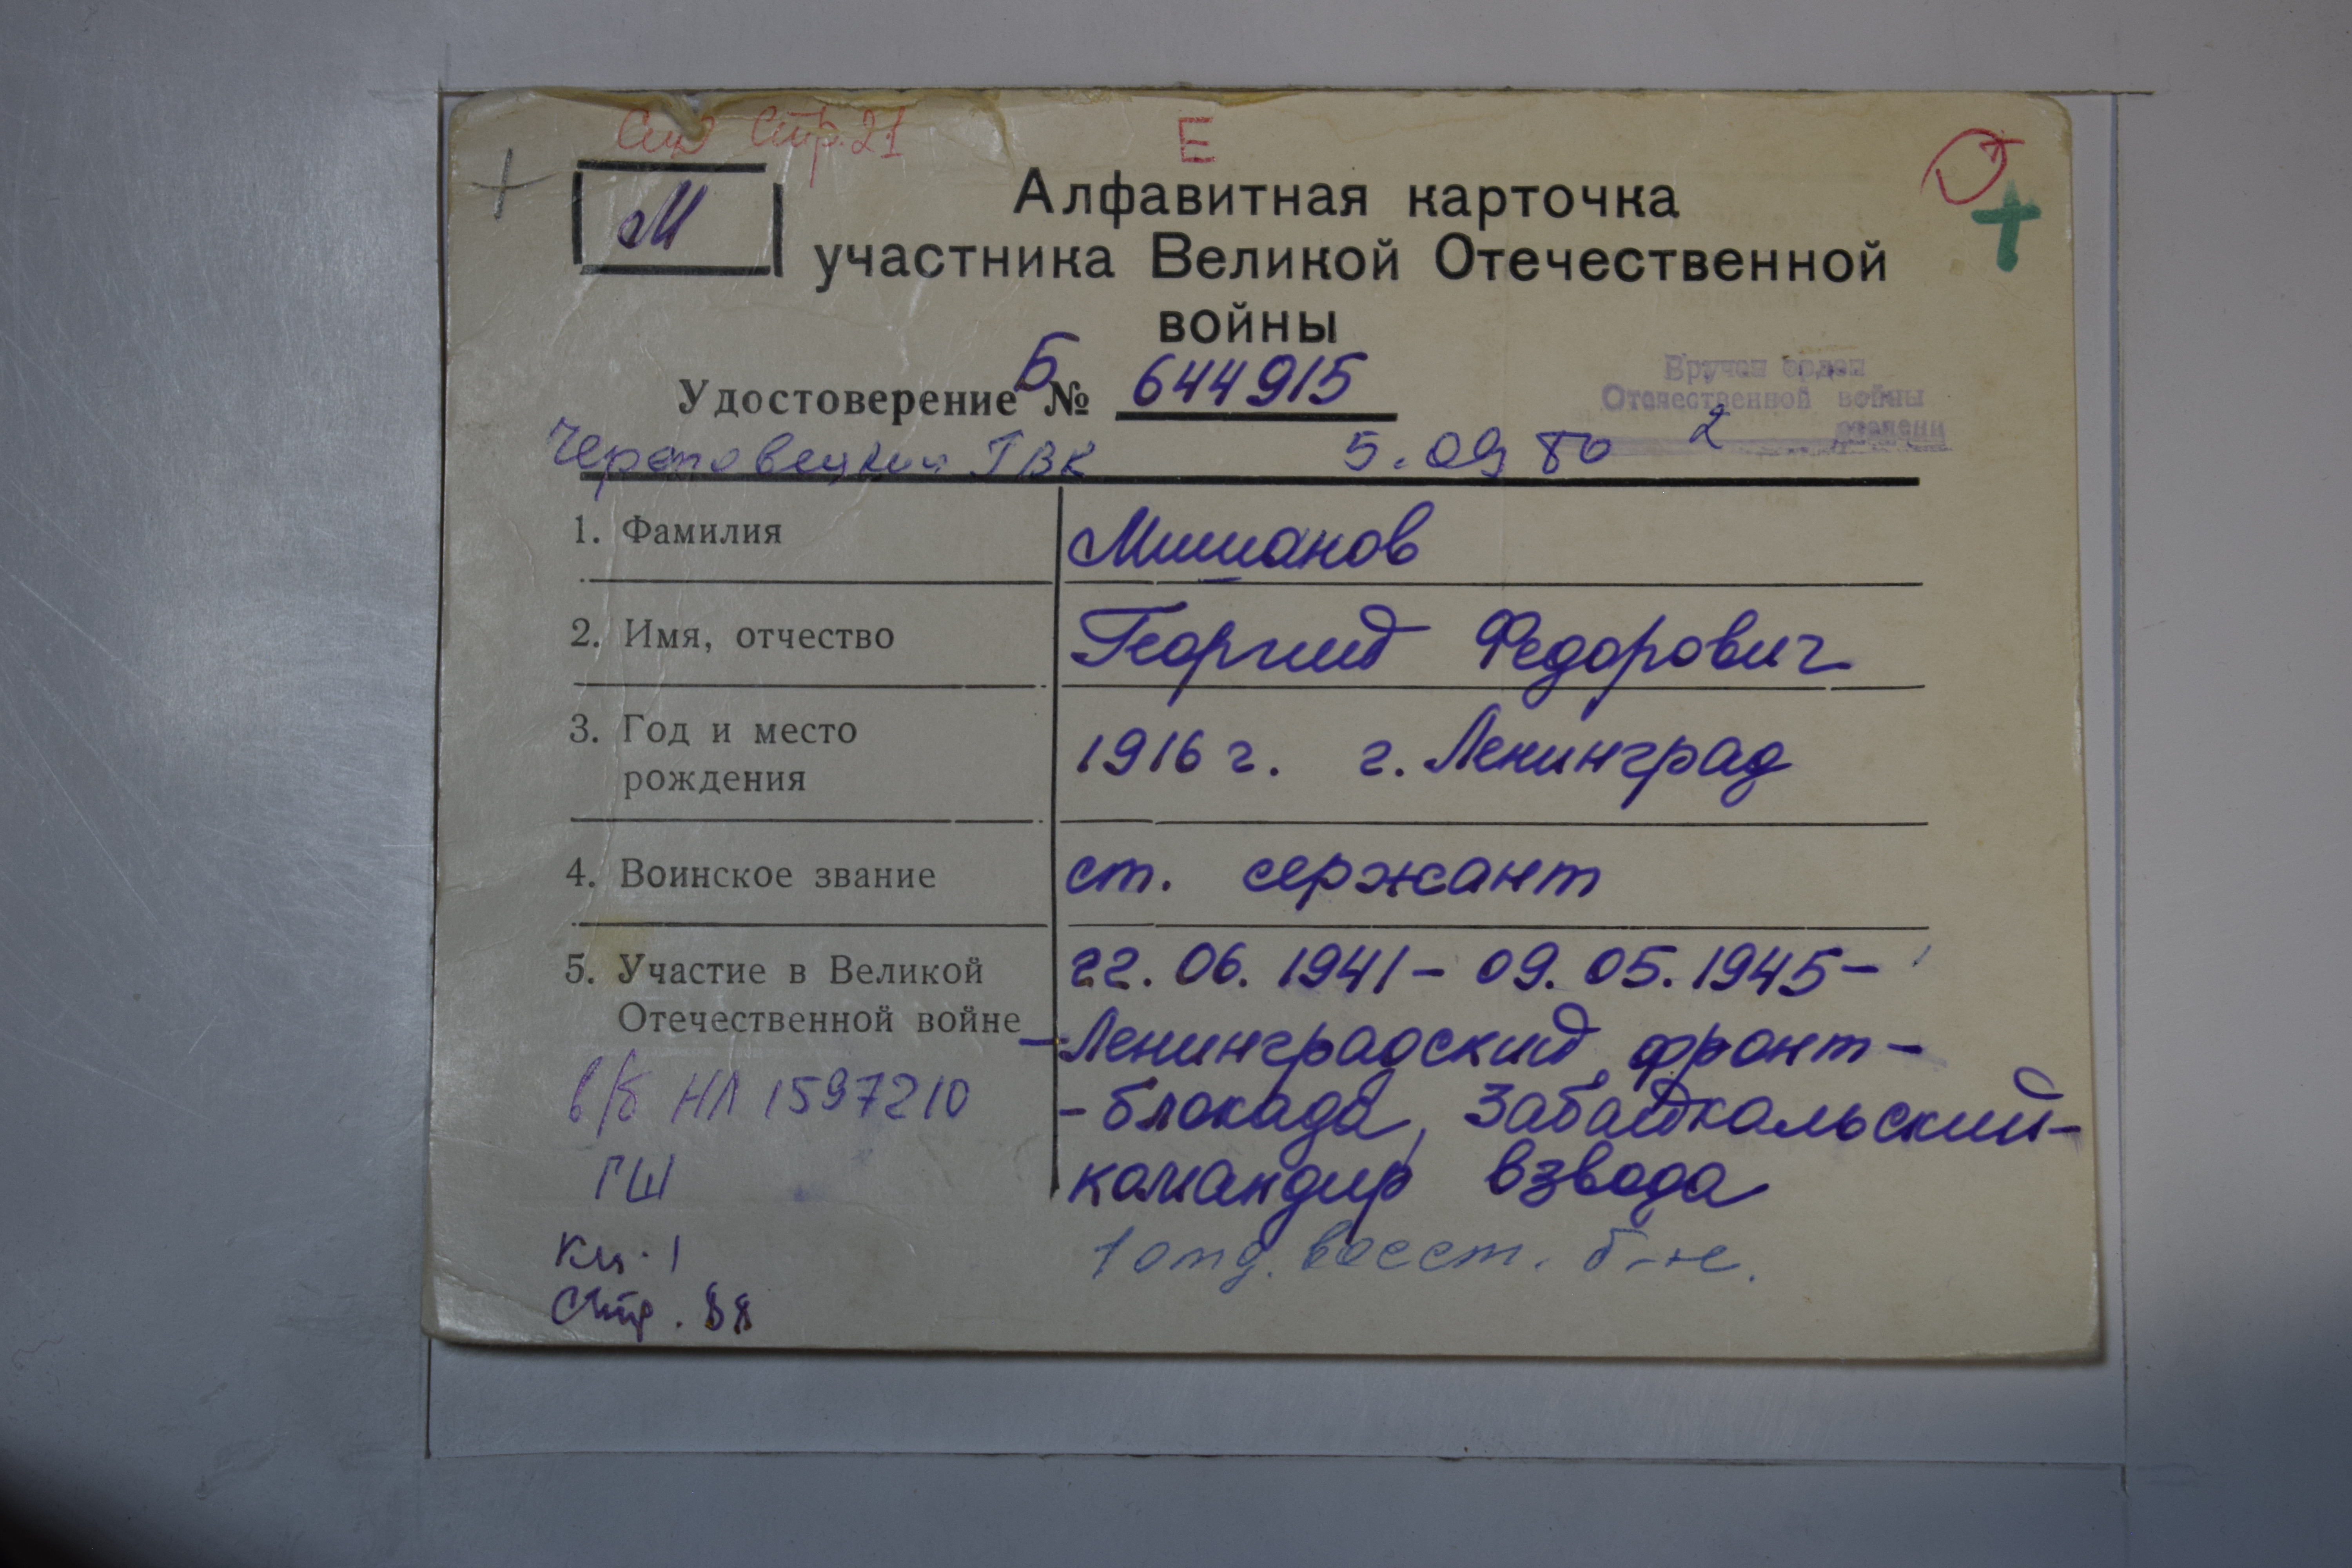 стр. 21
Е
М
Алфавитная карточка
участника Великой Отечественной
войны
Удостоверение Б № 644915
Вручен орден
Отечественной войны
2 степени
Череповецкий ГВК 5.09 80
1. Фамилия Мишанов
2. Имя, отчество Георгий Федорович
3. Год и место
рождения
1916 г. г. Ленинград
4. Воинское звание ст. сержант
5. Участие в Великой
Отечественной войне
22.06.1941 - 09.05.1945 -
- Ленинградский фронт -
- блокада, Забайкальский -
командир взвода
1 отд. восст. б-н.
в/б НЛ 1597210
ГШ
Кн. 1
Стр. 88